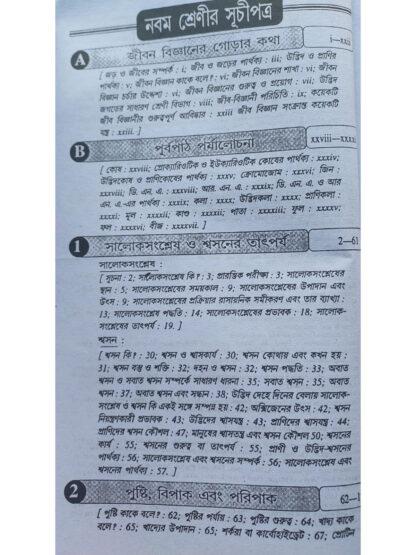 নবম শ্রেণীর সূচীপত্র
A জীবন বিজ্ঞানের গোড়ার কথা i—xxiii
[ জড় ও জীবের সম্পর্ক : i; জীব ও জড়ের পার্থক্য : iii; উদ্ভিদ ও প্রাণীর
পার্থক্য : v; জীবন বিজ্ঞান কাকে বলে? : vi; জীবন বিজ্ঞানের শাখা : vi; জীবন
বিজ্ঞান চর্চার উদ্দেশ্য : vi; জীবন বিজ্ঞানের গুরুত্ব ও প্রয়োগ : vii; উদ্ভিদ
জগতের সাধারণ শ্রেণী বিভাগ : viii; জীব-বিজ্ঞানী পরিচিতি : ix; কয়েকটি
জীব বিজ্ঞানীর গুরুত্বপূর্ণ আবিষ্কার : xxiii জীব বিজ্ঞান সংক্রান্ত কয়েকটি
যন্ত্র : xxiii. ]
B পূর্বপাঠ পর্যালোচনা xxviii—xxxx
[ কোষ : xxviii; প্রোক্যারিওটিক ও ইউক্যারিওটিক কোষের পার্থক্য : xxxiv;
উদ্ভিদকোষ ও প্রাণিকোষের পার্থক্য : xxxv; ক্রোমোজোম : xxxvi; জিন :
xxxviii; ডি. এন. এ. : xxxviii; আর. এন. এ. : xxxix; ডি. এন. এ. ও আর
এন. এ.-এর পার্থক্য : xxxix; কলা : xxxx; উদ্ভিদকলা : xxxx; প্রাণিকলা :
xxxxi; মূল : xxxxii; কাণ্ড : xxxxii; পাতা : xxxxiii; ফুল : xxxxv;
ফল : xxxxvi; বীজ : xxxxvii. ]
1 সালোকসংশ্লেষ ও শ্বসনের তাৎপর্য 2—61
সালোকসংশ্লেষ :
[ সূচনা : 2; সালোকসংশ্লেষ কি? : 3; প্রারম্ভিক পরীক্ষা : 3; সালোকসংশ্লেষের
স্থান : 5; সালোকসংশ্লেষের সময়কাল : 9; সালোকসংশ্লেষের উপাদান এবং
উৎস : 9; সালোকসংশ্লেষের প্রক্রিয়ার রাসায়নিক সমীকরণ এবং তার ব্যাখ্যা :
13; সালোকসংশ্লেষ পদ্ধতি : 14; সালোকসংশ্লেষের প্রভাবক : 18; সালোক-
সংশ্লেষের তাৎপর্য : 19. ]
শ্বসন :
[ শ্বসন কি? : 30; শ্বসন ও শ্বাসকার্য : 30; শ্বসন কোথায় এবং কখন হয় :
31; শ্বসন বস্তু ও শক্তি : 32; দহন ও শ্বসন : 32; শ্বসন পদ্ধতি : 33; অবাত
শ্বসন ও সবাত শ্বসন সম্পর্কে সাধারণ ধারনা : 35; সবাত শ্বসন : 35; অবাত
শ্বসন : 37; অবাত শ্বসন এবং সন্ধান : 38; উদ্ভিদ দেহে দিনের বেলায় সালোক-
সংশ্লেষ ও শ্বসন কি একই সঙ্গে সম্পন্ন হয় : 42; অক্সিজেনের উৎস : 42; শ্বসন
নিয়ন্ত্রণকারী প্রভাবক : 43; উদ্ভিদের শ্বাসযন্ত্র : 43; প্রাণিদের শ্বাসযন্ত্র : 44;
প্রাণিদের শ্বসন কৌশল : 47; মানুষের শ্বাসতন্ত্র এবং শ্বসন কৌশল 50; শ্বসনের
কার্য : 55; শ্বসনের গুরুত্ব বা তাৎপর্য : 55; প্রাণী ও উদ্ভিদ-শ্বসনের
পার্থক্য : 56; সালোকসংশ্লেষ এবং শ্বসনের সম্পর্ক : 56; সালোকসংশ্লেষ এবং
শ্বসনের পার্থক্য : 57. ]
2 পুষ্টি, বিপাক এবং পরিপাক 62—1
[ পুষ্টি কাকে বলে? : 62; পুষ্টির পর্যায় : 63; পুষ্টির গুরুত্ব : 64; খাদ্য কাকে
বলে? : 65; খাদ্যের উপাদান : 65; শর্করা বা কার্বোহাইড্রেট : 67; প্রোটিন